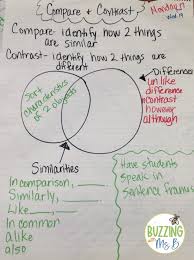 Compare + Contrast
Compare- identify how 2 things
are similar
Contrast- identify how 2 things
are different
Differences
unlike
difference
contrast
however
although
Sort
characteristics
of 2 objects
Similarities
In comparison,
Similarly,
Like
In common
alike
also
Have students
speak in
sentence frames
BUZZING
with
Ms. B